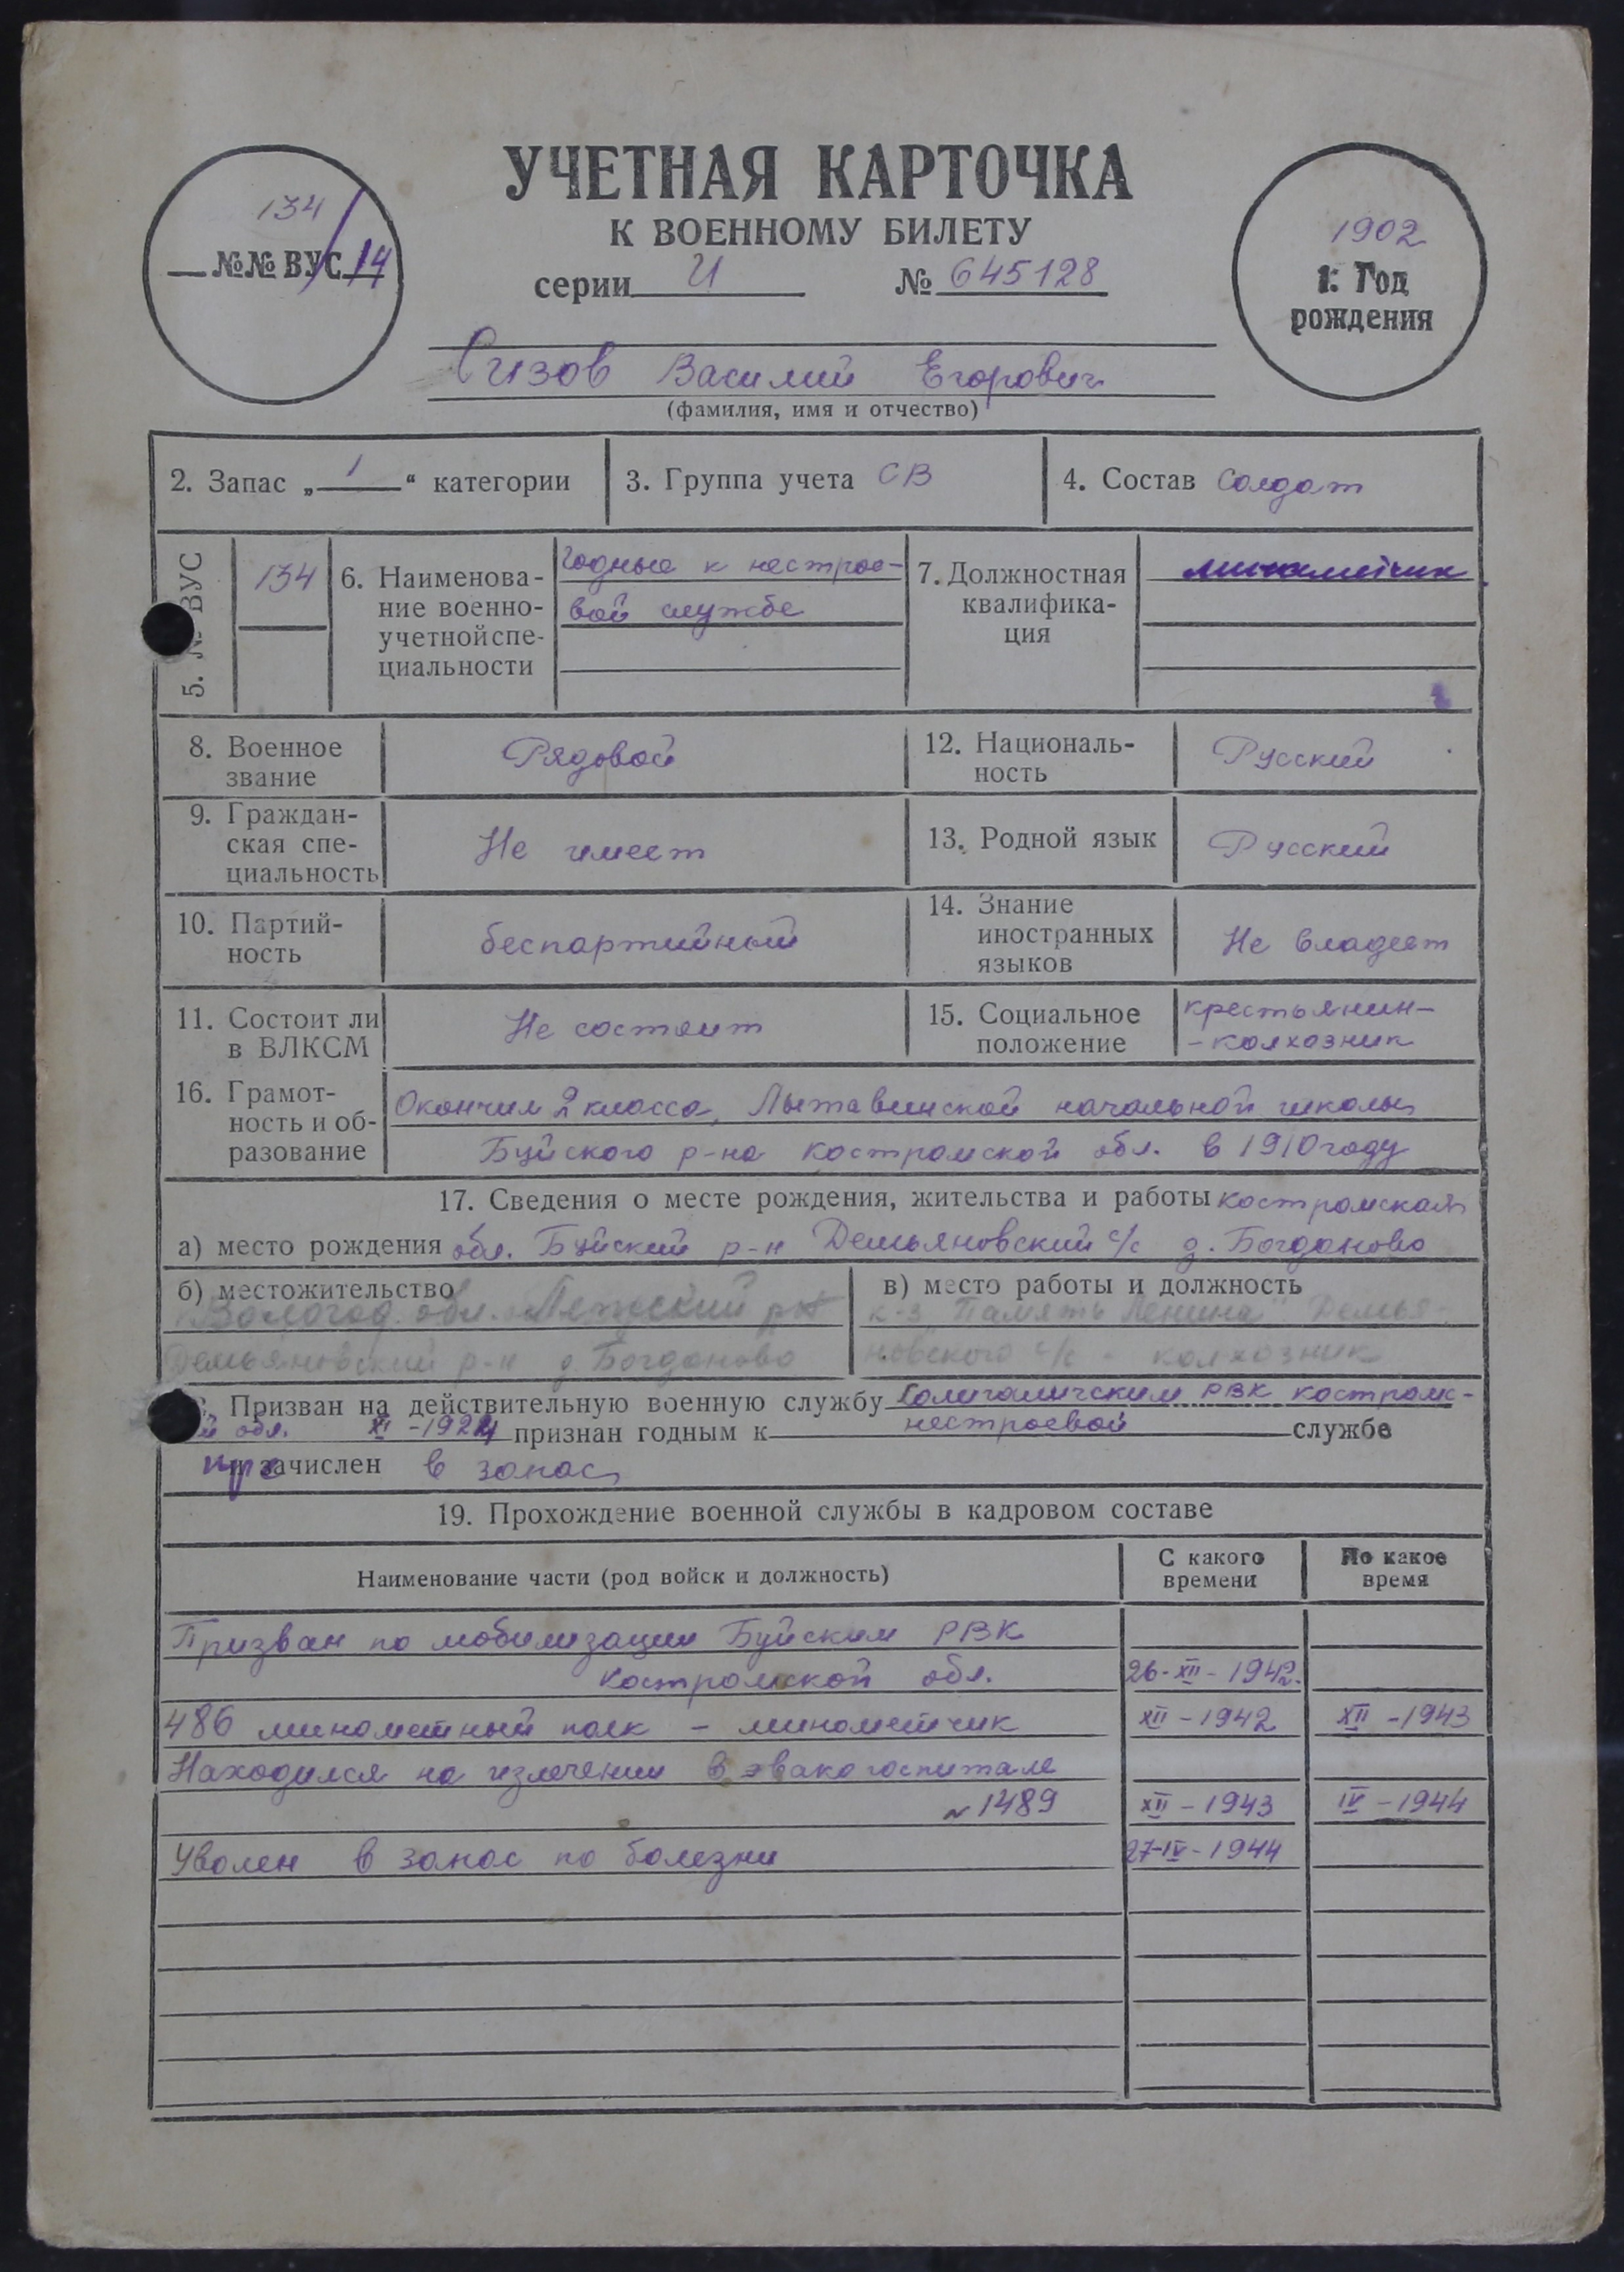 УЧЕТНАЯ КАРТОЧКА
К ВОЕННОМУ БИЛЕТУ
серии И № 645128
134
№№ ВУС 14
1902
1. Год
рождения
Сизов Василий Егорович
(фамилия, имя и отчество)
2. Запас „ 1 “ категории
3. Группа учета СВ
4. Состав Солдат
5. № ВУС
134
6. Наименова-
ние военно-
учетной спе-
циальности
Годные к нестрое-
вой службе
7. Должностная
квалифика-
ция
минометчик
8. Военное
звание
Рядовой
12. Националь-
ность
Русский
9. Граждан-
ская спе-
циальность
Не имеет
13. Родной язык
Русский
10. Партий-
ность
беспартийный
14. Знание
иностранных
языков
Не владеет
11. Состоит ли
в ВЛКСМ
Не состоит
15. Социальное
положение
крестьянин-
-колхозник
16. Грамот-
ность и об-
разование
Окончил 2 класса, начальной школы
Буйского р-на Костромской обл. в 1910 году
17. Сведения о месте рождения, жительства и работы Костромская
а) место рождения обл. Буйский р-н Демьяновский с/с д. Богданово
б) местожительство
Вологод. обл.
Демьяновский р-н д. Богданово
в) место работы и должность
к-з "Память Ленина" Демья-
новского с/с - колхозник
Призван на действительную военную службу Солигаличским РВК Костромс-
й обл. XI-1924 признан годным к нестроевой службе
и зачислен в запас
19. Прохождение военной службы в кадровом составе
Наименование части (род войск и должность)
С какого
времени
По какое
время
Призван по мобилизации Буйским РВК
Костромской обл. 26-XII-1942.
486 минометный полк - минометчик XII-1942 XII-1943
Находился на излечении в эвакогоспитале
№1489 XII-1943 IV-1944
Уволен в запас по болезни 27-IV-1944